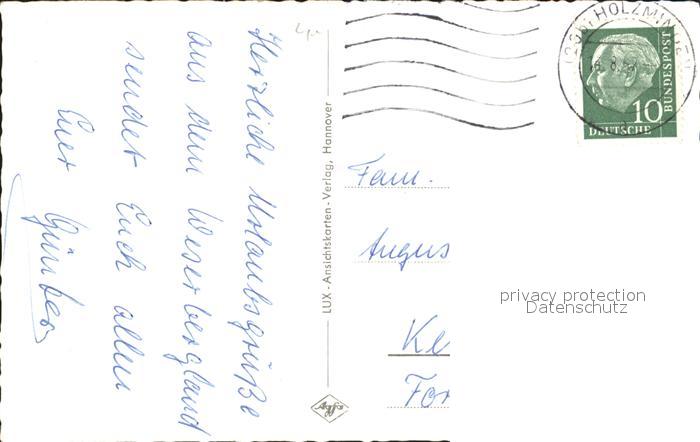 Herzliche Urlaubsgrüße
aus dem Weserbergland
sendet Euch allen
Euer Günter
LUX-Ansichtskarten-Verlag, Hannover
Agfa
HOLZMINDEN
10
DEUTSCHE
BUNDESPOST
Fam.
Augus
Ke
For
privacy protection
Datenschutz